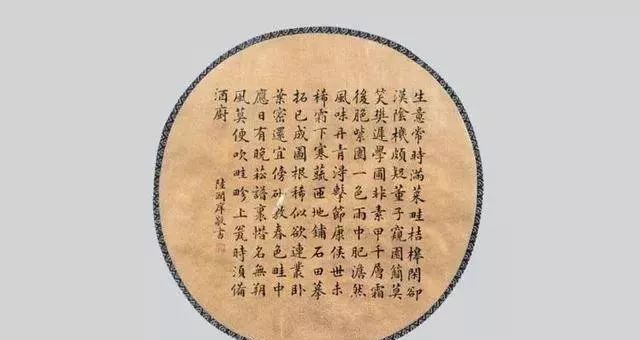 生意常時滿菜畦桔槔閑卻
漢陰機頗疑董子窺園簡莫
笑樊遲學圃非素甲千層霜
後脆紫團一色雨中肥澹然
風味丹青得舉節康侯世未
稀霜下寒蔬匝地鋪石田摹
拓已成圖根稀似欲連叢卧
葉密還宜傍砌敷春色畦中
應日有晚菘譜裏惜名無朔
風莫便吹畦畛上瓮時須備
酒廚
陸潤庠敬書